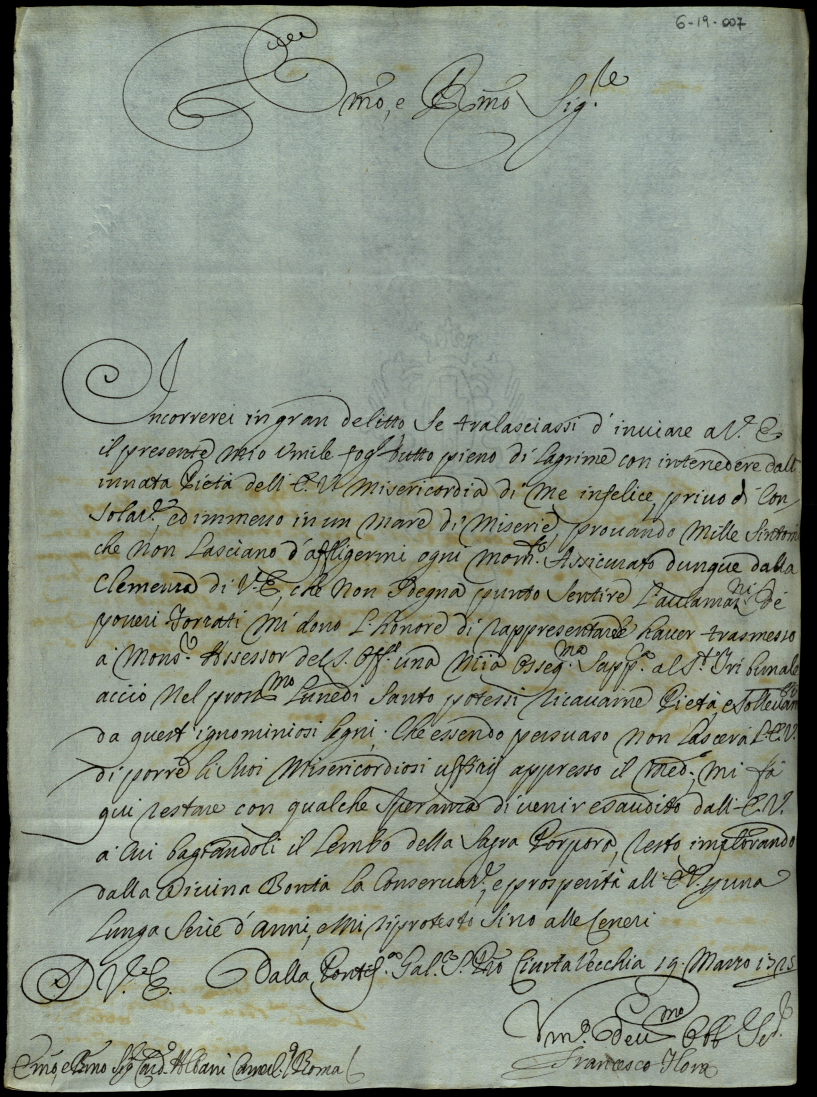 6-19-007
Emo, e Rmo Sig.re
Incorrerei in gran delitto se tralasciassi d'inviare a V. E
il presente mio umile fogl. tutto pieno di lagrime con intenedere dall
innata Pietà dell E. V. Misericordia di me infelice, privo di Con
solaz.e, ed immerso in un mare di Miserie, provando mille sintomi
che non lasciano d'affligermi ogni mom.to Assicurato dunque dalla
Clemenza di V. E, che non sdegna punto sentire l'aclamaz.ni de
poveri forzati mi dono l'honore di rappresentarle haver trasmesso
a Mons.r Assessor del S. Off.o una mia osseq.ma Supp.ca al S.to Tribunale
acciò nel pross.mo Lunedì Santo potessi ricavarne Pietà, e
da quest'ignominiosi legni. Che essendo persuaso non lascerà l'E. V.
di porre li suoi misericordiosi uffitij appresso il med.o, mi fà
qui restare con qualche speranza di venir esaudito dall E. V.
a cui baciandoli il lembo della Sagra Porpora, resto implorando
dalla Divina Bontà la conservaz.e, e prosperità all E. V. p una
lunga serie d'anni, e mi riprotesto sino alle ceneri
D V.a E. Dalla Pontif.a Gal.a S. Pio Civita Vecchia 19. Marzo 1725
Vm.o Dev.mo Obb Se.
Francesco Flora
Emo, e Rmo Sig Card. Albani Camerl.o Roma